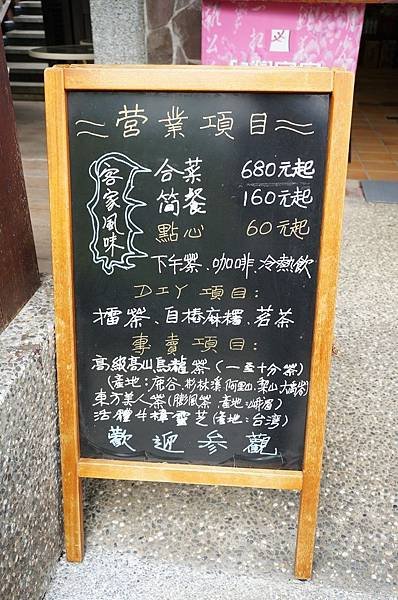 営業項目
客家風味
合菜 680元起
簡餐 160元起
點心 60元起
下午茶、咖啡、冷熱飲
DIY項目:
擂茶、自樁麻糬、茗茶
專賣項目:
高級高山烏龍茶(一至十分茶)
(產地:鹿谷、彬林溪 阿里山、梨山 大禹嶺)
東方美人茶(膨風茶 產地:峨眉)
活體牛樟靈芝(產地:台湾)
歡迎參觀